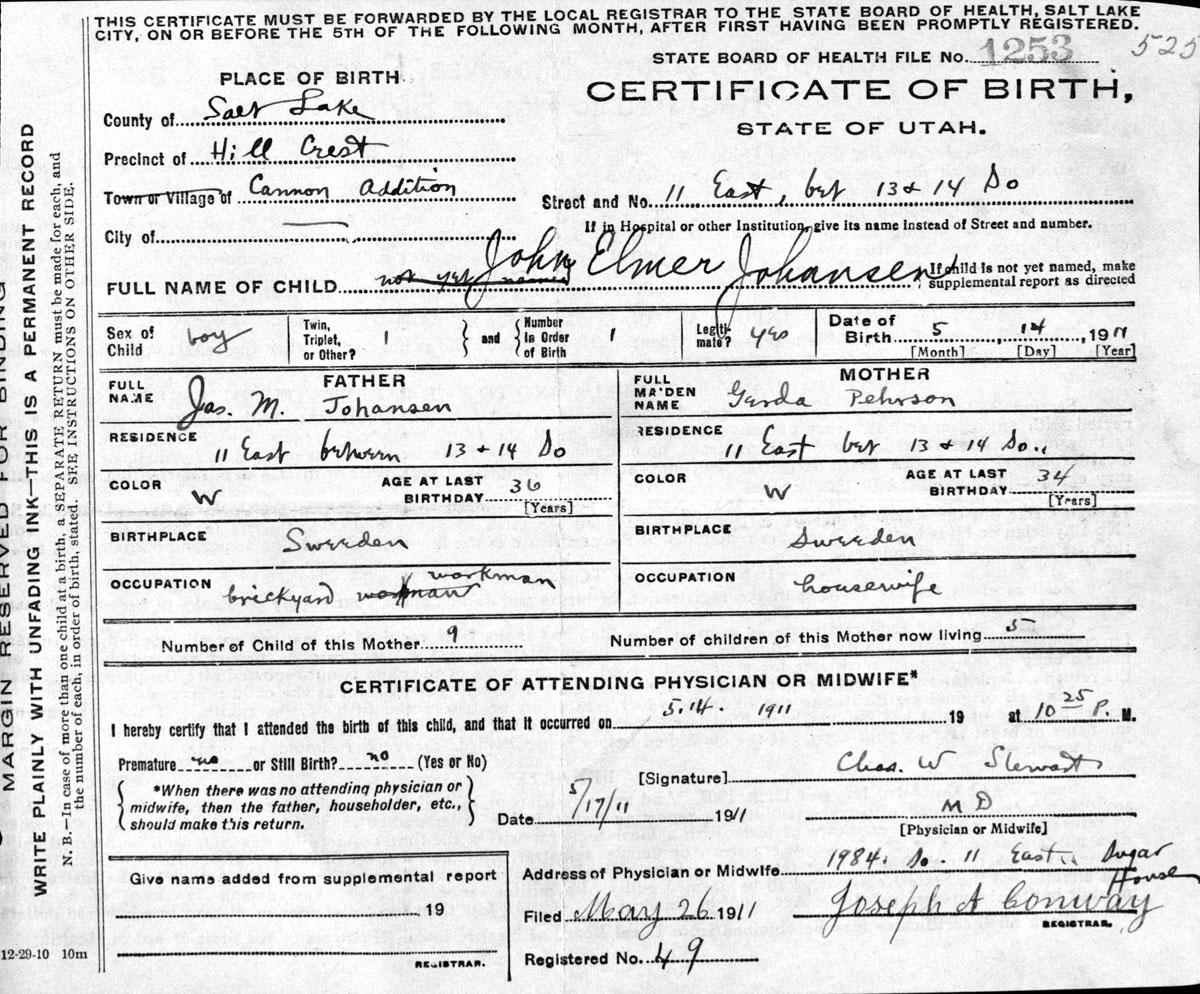 THIS CERTIFICATE MUST BE FORWARDED BY THE LOCAL REGISTRAR TO THE STATE BOARD OF HEALTH, SALT LAKE
CITY, ON OR BEFORE THE 5TH OF THE FOLLOWING MONTH, AFTER FIRST HAVING BEEN PROMPTLY REGISTERED.
STATE BOARD OF HEALTH FILE No. 1253 525
PLACE OF BIRTH
CERTIFICATE OF BIRTH,
STATE OF UTAH.
County of Salt Lake
Precinct of Hill Crest
Town or Village of Cannon Addition
Street and No. 11 East, bet 13 & 14 So
If in Hospital or other Institution, give its name instead of Street and number.
City of
FULL NAME OF CHILD not yet named John Elmer Johansen
If child is not yet named, make
supplemental report as directed
Sex of Child boy
Twin, Triplet, or Other? 1
and Number in Order of Birth 1
Legitimate? yes
Date of Birth 5, 14, 1911
[Month] [Day] [Year]
FATHER
FULL NAME Jas. M. Johansen
RESIDENCE 11 East between 13 & 14 So
COLOR W
AGE AT LAST BIRTHDAY 36
[Years]
BIRTHPLACE Sweeden
OCCUPATION brickyard workman workman
MOTHER
FULL MAIDEN NAME Gerda Pehrson
RESIDENCE 11 East bet 13 & 14 So..
COLOR W
AGE AT LAST BIRTHDAY 34
[Years]
BIRTHPLACE Sweeden
OCCUPATION housewife
Number of Child of this Mother 9
Number of children of this Mother now living 5
CERTIFICATE OF ATTENDING PHYSICIAN OR MIDWIFE*
I hereby certify that I attended the birth of this child, and that it occurred on 5.14. 1911 19 at 10 25 P. M.
Premature no or Still Birth? no (Yes or No)
*When there was no attending physician or
midwife, then the father, householder, etc.,
should make this return.
[Signature] Chas. W Stewart
Date 5/17/11 1911
M D
[Physician or Midwife]
Give name added from supplemental report
19
REGISTRAR.
Address of Physician or Midwife 1984. So. 11 East.. Sugar House
Filed May 26 1911
Joseph A Conway
REGISTRAR.
Registered No. 49
12-29-10 10m
MARGIN RESERVED FOR BINDING
WRITE PLAINLY WITH UNFADING INK—THIS IS A PERMANENT RECORD
N. B.—In case of more than one child at a birth, a SEPARATE RETURN must be made for each, and
the number of each, in order of birth, stated. SEE INSTRUCTIONS ON OTHER SIDE.